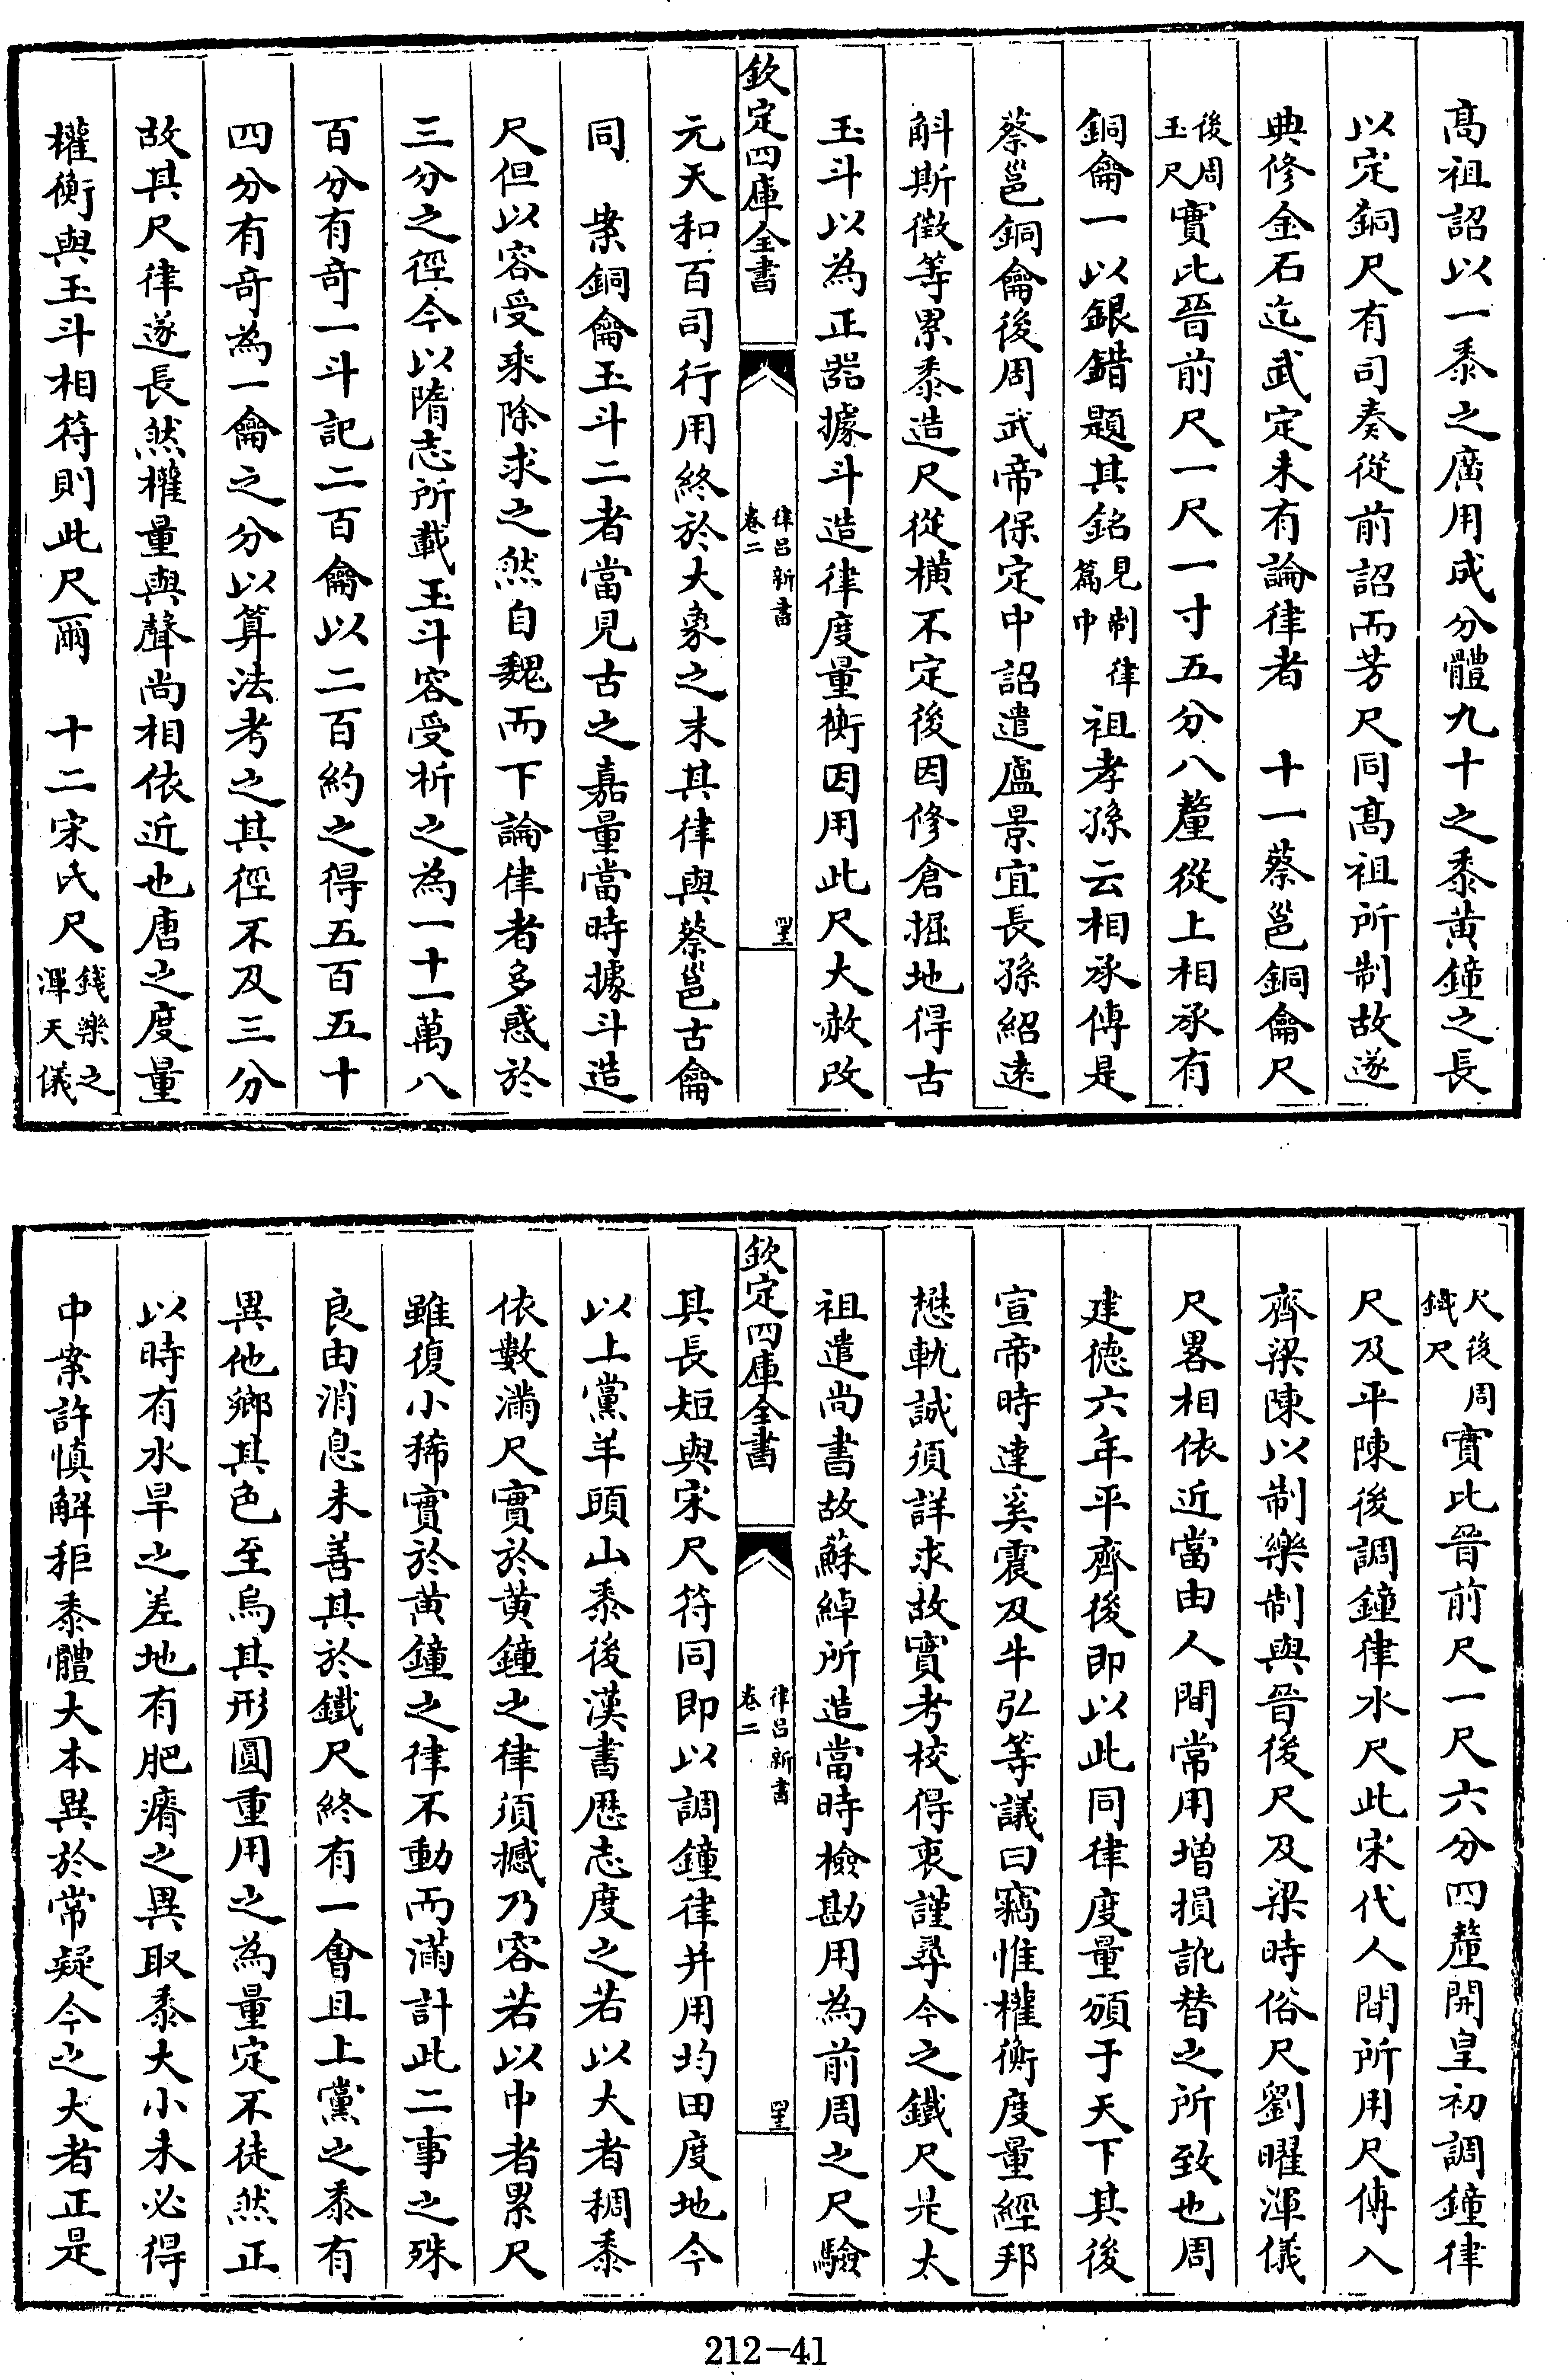 高祖詔以一黍之廣用成分體九十之黍黄鐘之長
以定銅尺有司奏從前詔而芳尺同高祖所制故遂
典修金石迄武定未有論律者　十一蔡邕銅龠尺
後周玉尺實比晉前尺一尺一寸五分八釐從上相承有
銅龠一以銀錯題其銘見制律篇中祖孝孫云相承傳是
蔡邕銅龠後周武帝保定中詔遣盧景宣長孫紹逺
斛斯徴等累黍造尺從横不定後因修倉掘地得古
玉斗以為正器據斗造律度量衡因用此尺大赦改
欽定四庫全書　律吕新書卷二
元天和百司行用終於大象之末其律與蔡邕古龠
同　案銅龠玉斗二者當見古之嘉量當時據斗造
尺但以容受乘除求之然自魏而下論律者多惑於
三分之徑今以隋志所載玉斗容受析之為一十一萬八
百分有奇一斗記二百龠以二百約之得五百五十
四分有奇為一龠之分以算法考之其徑不及三分
故其尺律遂長然權量與聲尚相依近也唐之度量
權衡與玉斗相符則此尺爾　十二宋氏尺錢樂之渾天儀
尺後周鐵尺實比晉前尺一尺六分四釐開皇初調鐘律
尺及平陳後調鐘律水尺此宋代人間所用尺傳入
齊梁陳以制樂制與晉後尺及梁時俗尺劉曜渾儀
尺畧相依近當由人間常用增損訛替之所致也周
建德六年平齊後即以此同律度量頒于天下其後
宣帝時達奚震及牛弘等議曰竊惟權衡度量經邦
懋軌誠須詳求故實考校得衷謹尋今之鐵尺是太
祖遣尚書故蘇綽所造當時檢勘用為前周之尺驗
欽定四庫全書　律吕新書卷二
其長短與宋尺符同即以調鐘律并用均田度地今
以上黨羊頭山黍後漢書歴志度之若以大者稠黍
依數滿尺實於黄鐘之律須撼乃容若以中者累尺
雖復小稀實於黄鐘之律不動而滿計此二事之殊
良由消息未善其於鐵尺終有一會且上黨之黍有
異他鄉其色至烏其形圓重用之為量定不徒然正
以時有水旱之差地有肥瘠之異取黍大小未必得
中案許慎解秬黍體大本異於常疑今之大者正是
212-41